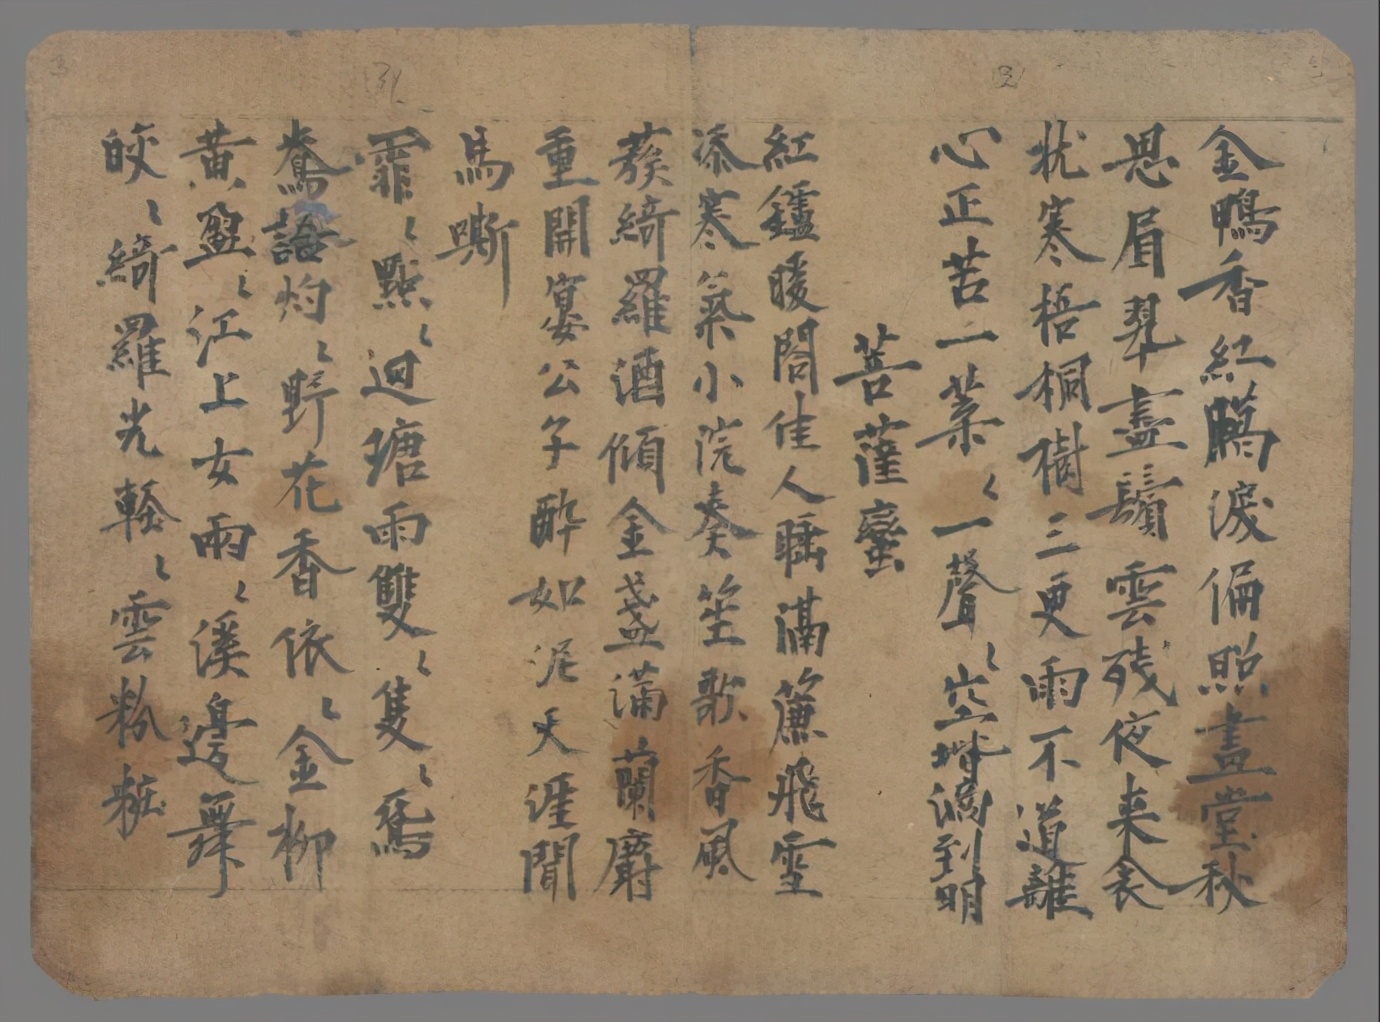 金鴨香紅䗶淚偏照畫堂秋
思眉翠盡鬢雲殘夜来衾
枕寒梧桐樹三更雨不道離
心正苦一葉〻一聲〻空堦滴到明
菩薩蠻
紅鑪暖閤佳人睡滿簾飛雪
添寒氣小浣奏笙歌香風
蔟綺羅酒傾金盞滿蘭麝
重開宴公子醉如泥天涯聞
馬嘶
霏〻點〻迴塘雨雙〻隻〻鴛
鴦語灼〻野花香依〻金柳
黃盈〻江上女兩〻溪邊舞
皎〻綺羅光輕〻雲粉粧